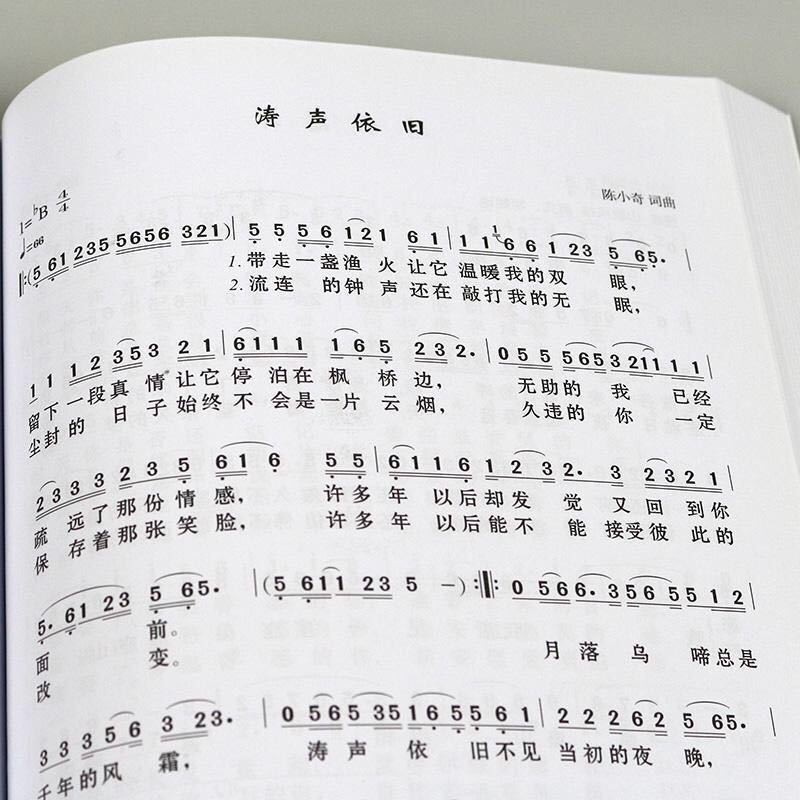 涛声依旧
陈小奇 词曲
1=♭B 4/4
♩=66
‖:(5 61 235 5656 321)| 5 5 56 121 61 | 1166 123 5 65· |
1. 带走一盏渔火让它温暖我的双眼,
2. 流连的钟声还在敲打我的无眠,
1 1 12 353 21 | 6111 165 232· | 055 565 3211 11 |
留下一段真情让它停泊在枫桥边, 无助的我已经
尘封的日子始终不会是一片云烟, 久违的你一定
2333 235 616 55 | 6116 123 2·3 2321 |
疏远了那份情感, 许多年以后却发觉又回到你
保存着那张笑脸, 许多年以后能不能接受彼此的
5·6123 565· | (5 611 23 5 —):‖ 0566·3565512 |
面前。 月落乌啼总是
改变。
33356 323· | 0565351655561 | 222622 565· |
千年的风霜, 涛声依旧不见当初的夜晚,